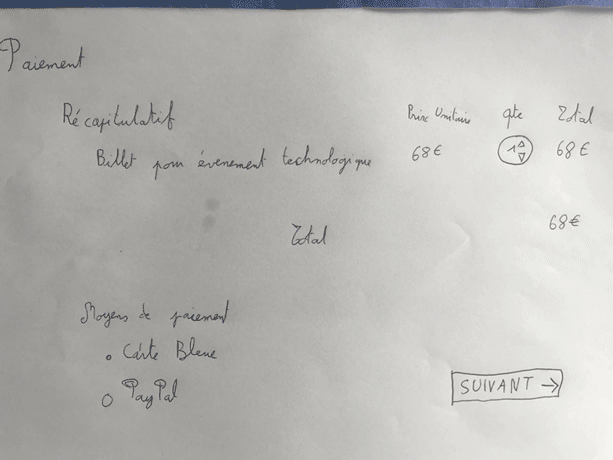 Paiement
Récapitulatif Prix Unitaire qte Total
Billet pour évenement technologique 68€ 1 68€
Total 68€
Moyens de paiement
Carte Bleue
PayPal
SUIVANT →